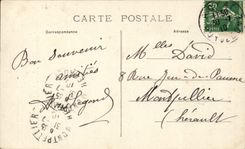 CARTE POSTALE
Correspondance
Adresse
Bon Souvenir
amitiés
Mlles David
8 Rue Jeu-de-Paume
Montpellier
Hérault
MONTPELLIER